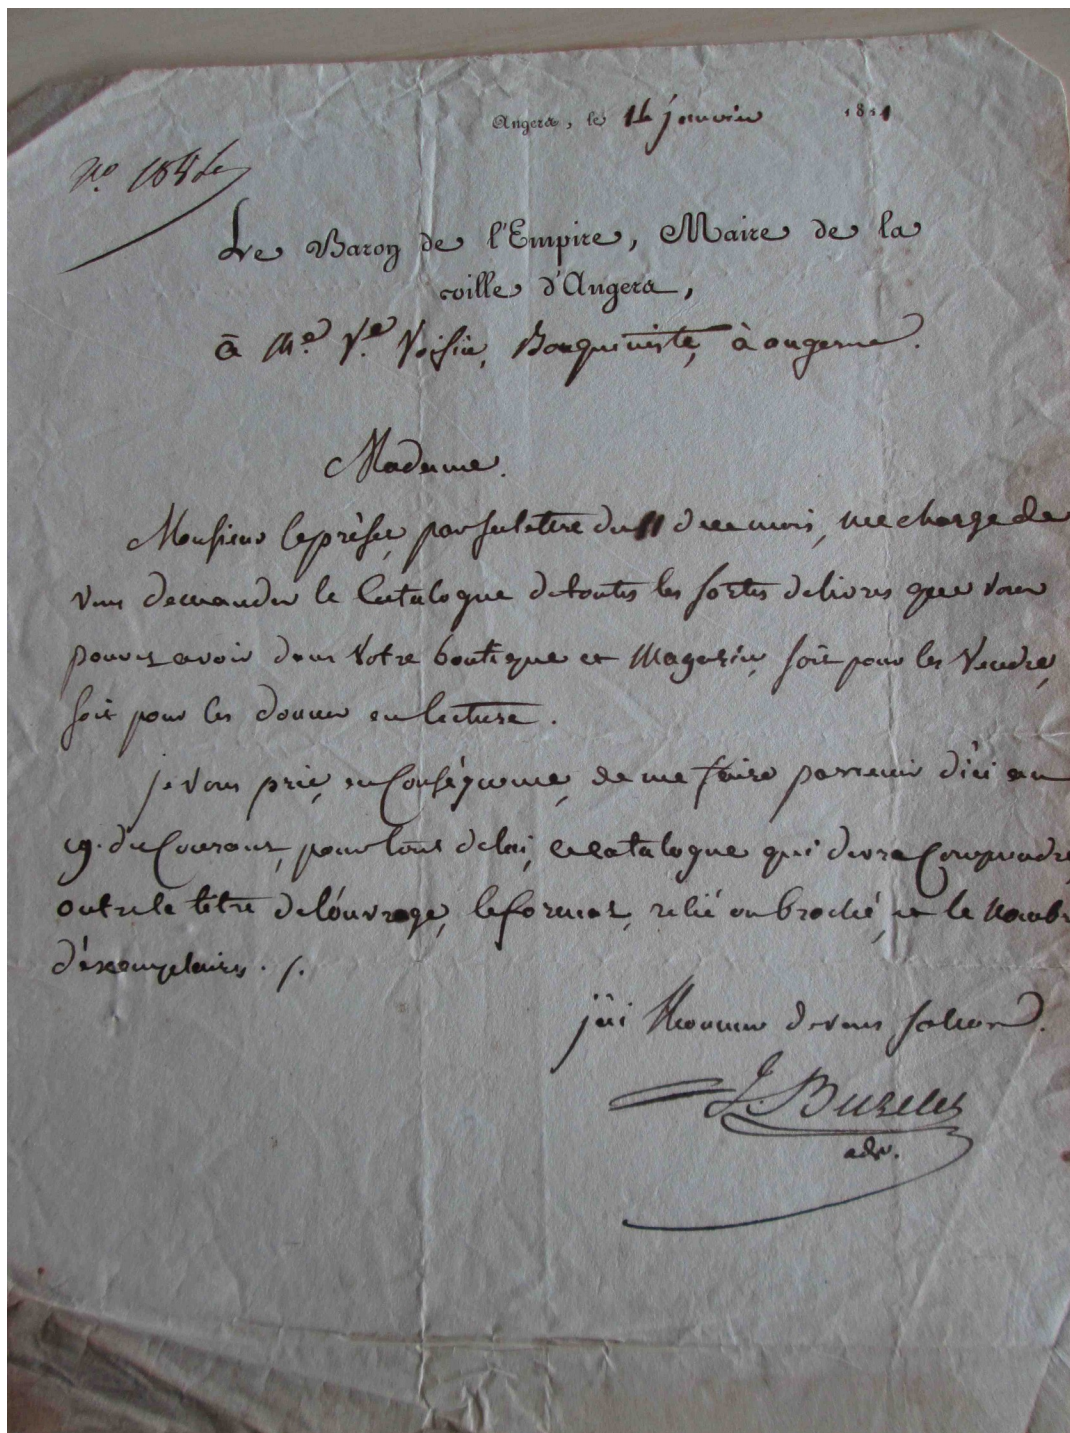 Angers, le 14 janvier 1811
N.o
Le Baron de l'Empire, Maire de la
ville d'Angers,
à M.e V.e Voisin, Bouquiniste, à angers.
Madame.
Monsieur le préfet, par sa lettre du 11 de ce mois, me charge de
vous demander le Catalogue de toutes les sortes de livres que vous
pouvez avoir dans votre boutique et Magasin, soit pour les Vendre,
soit pour les donner en lecture.
je vous prie, en Conséquence, de me faire parvenir d'ici au
19. du Courant, pour tout delai, ce catalogue qui devra Comprendre
outre le titre de l'ouvrage, le format, relié ou broché, et le Nombre
d'exemplaires. /.
j'ai l'honneur de vous saluer.
adj.